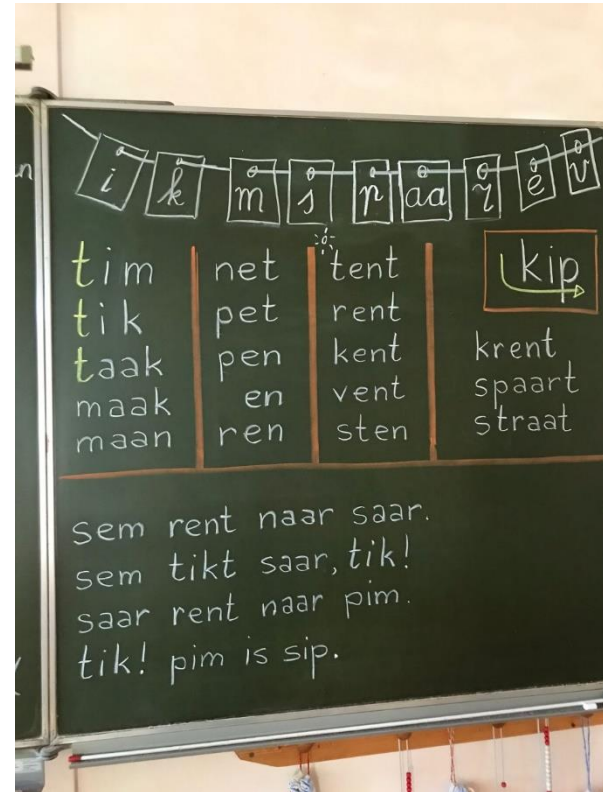 i k m s p aa r e v
tim
tik
taak
maak
maan
net
pet
pen
en
ren
tent
rent
kent
vent
sten
kip
krent
spaart
straat
sem rent naar saar.
sem tikt saar, tik!
saar rent naar pim.
tik! pim is sip.